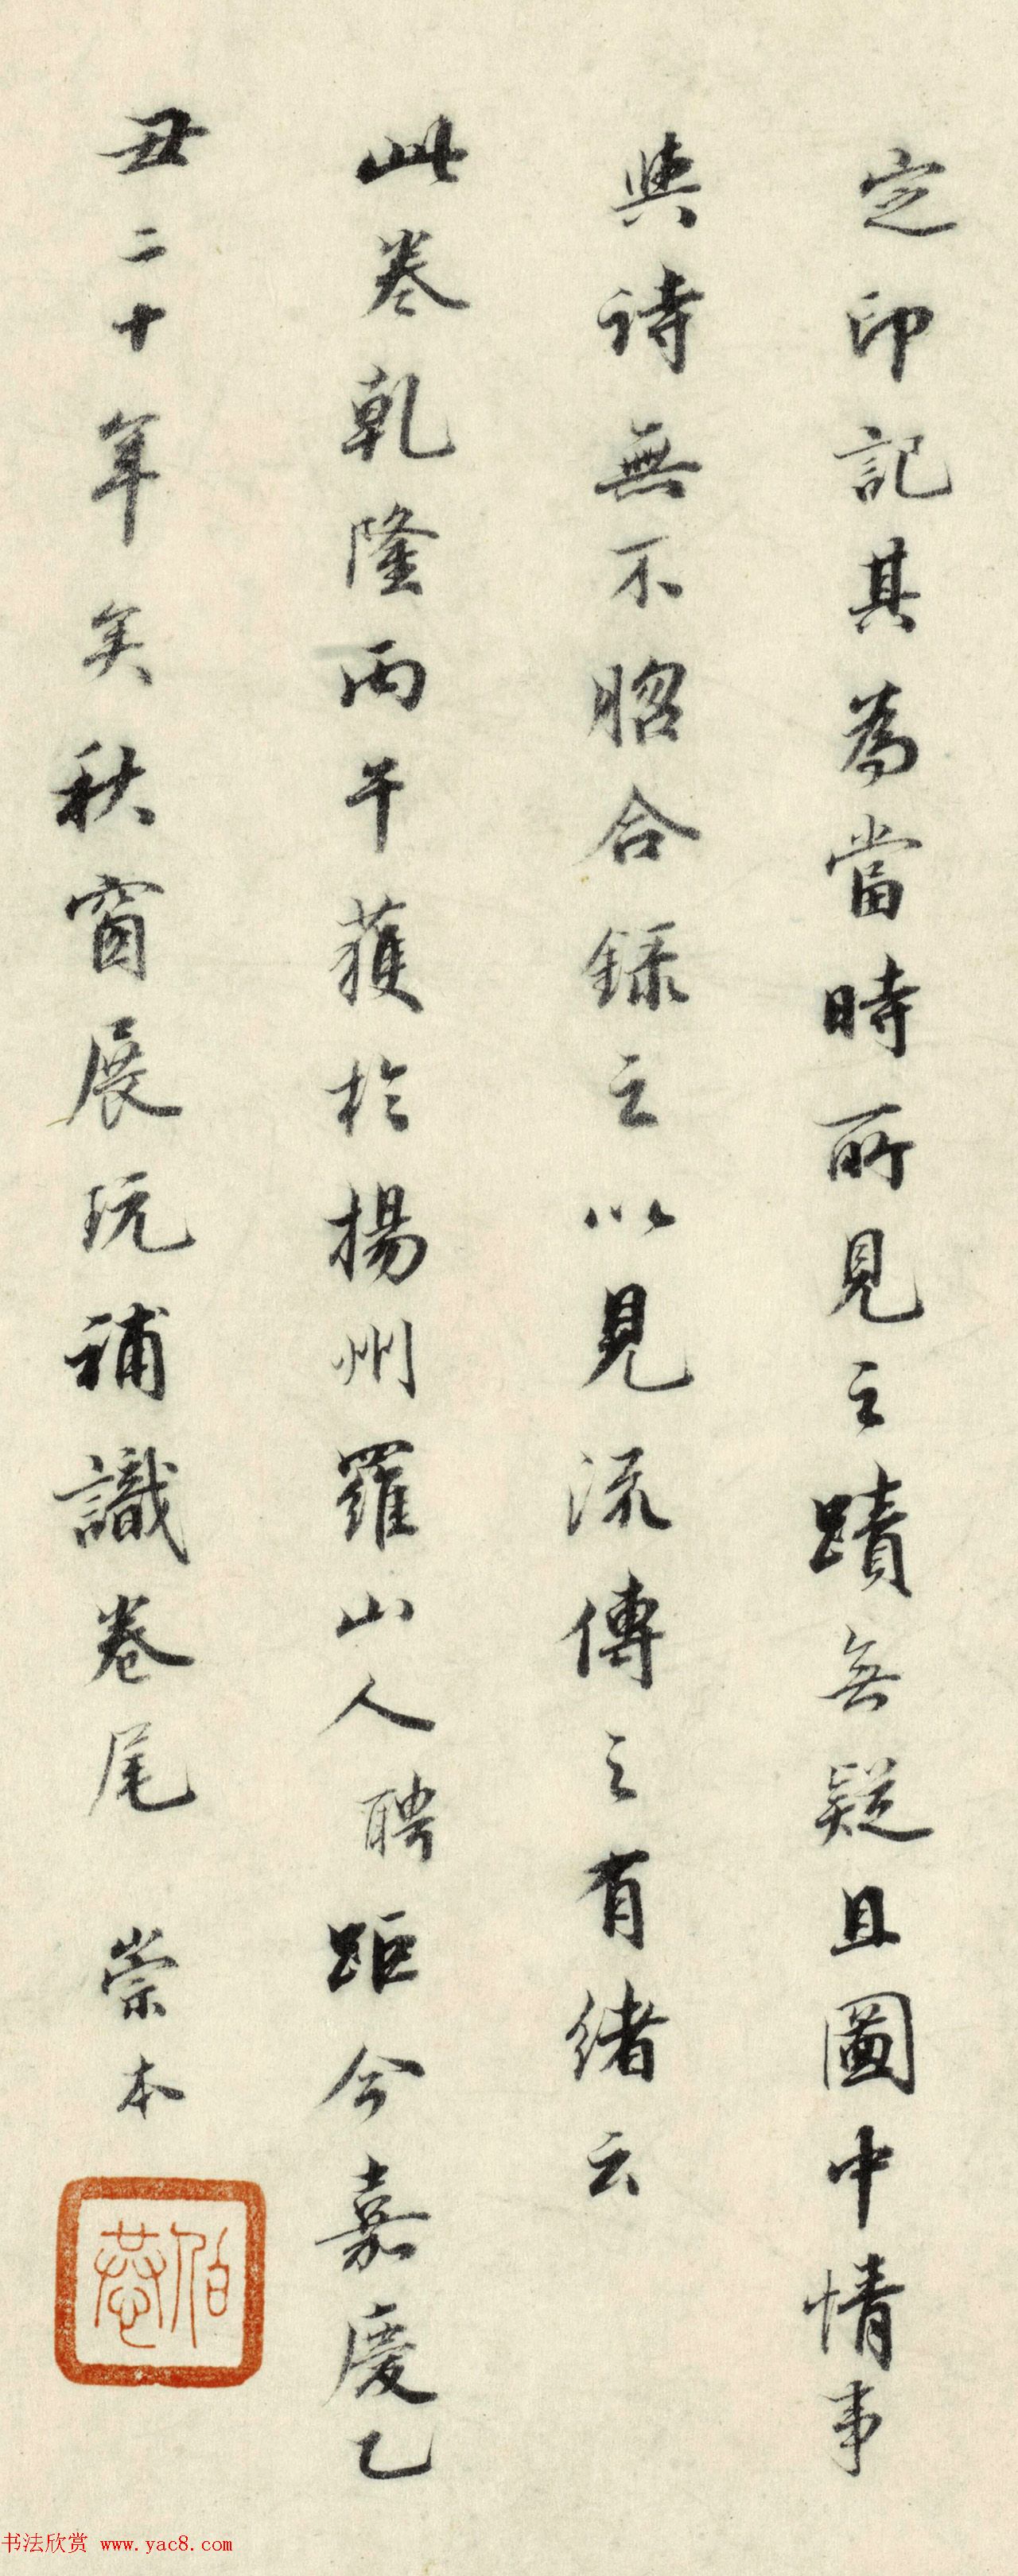 定印記其為當時所見之蹟無疑且圖中情事
與詩無不脗合録之以見流傳之有緒云
此卷乾隆丙午獲於揚州羅山人聘距今嘉慶乙
丑二十年矣秋窗展玩補識卷尾 崇本
伯恭
书法欣赏 www.yac8.com